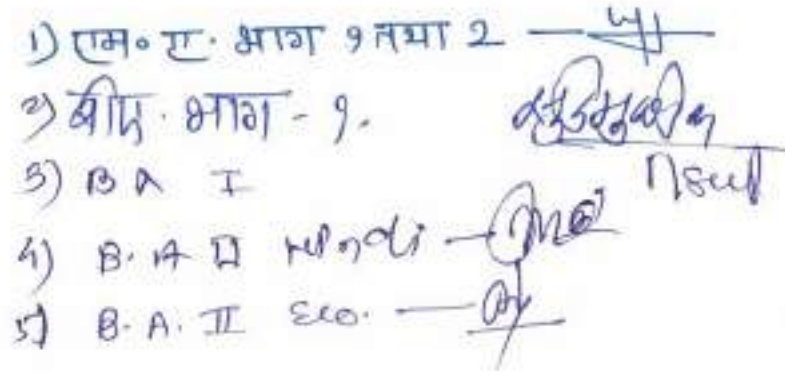 1) एम० ए. भाग १ तथा 2 —
2) बीए. भाग - १.
3) B A I
4) B. A II Hindi —
5) B. A. II Eco. —